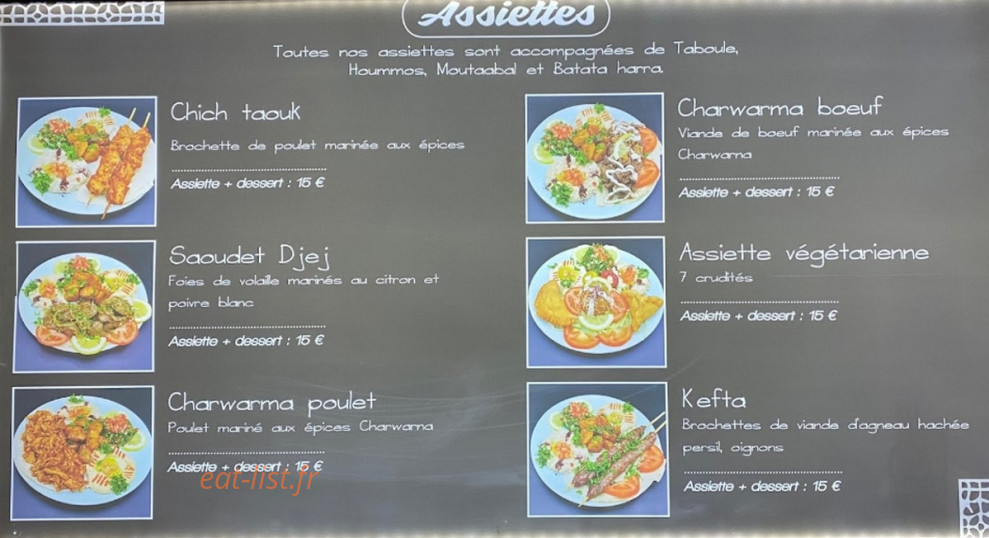 Assiettes
Toutes nos assiettes sont accompagnées de Taboule,
Hoummos, Moutaabal et Batata harra.
Chich taouk
Brochette de poulet marinée aux épices
Assiette + dessert : 15 €
Saoudet Djej
Foies de volaille marinés au citron et
poivre blanc
Assiette + dessert : 15 €
Charwarma poulet
Poulet mariné aux épices Charwarna
Assiette + dessert : 15 €
eat-list.fr
Charwarma boeuf
Viande de boeuf marinée aux épices
Charwarna
Assiette + dessert : 15 €
Assiette végétarienne
7 crudités
Assiette + dessert : 15 €
Kefta
Brochettes de viande d'agneau hachée
persil, oignons
Assiette + dessert : 15 €